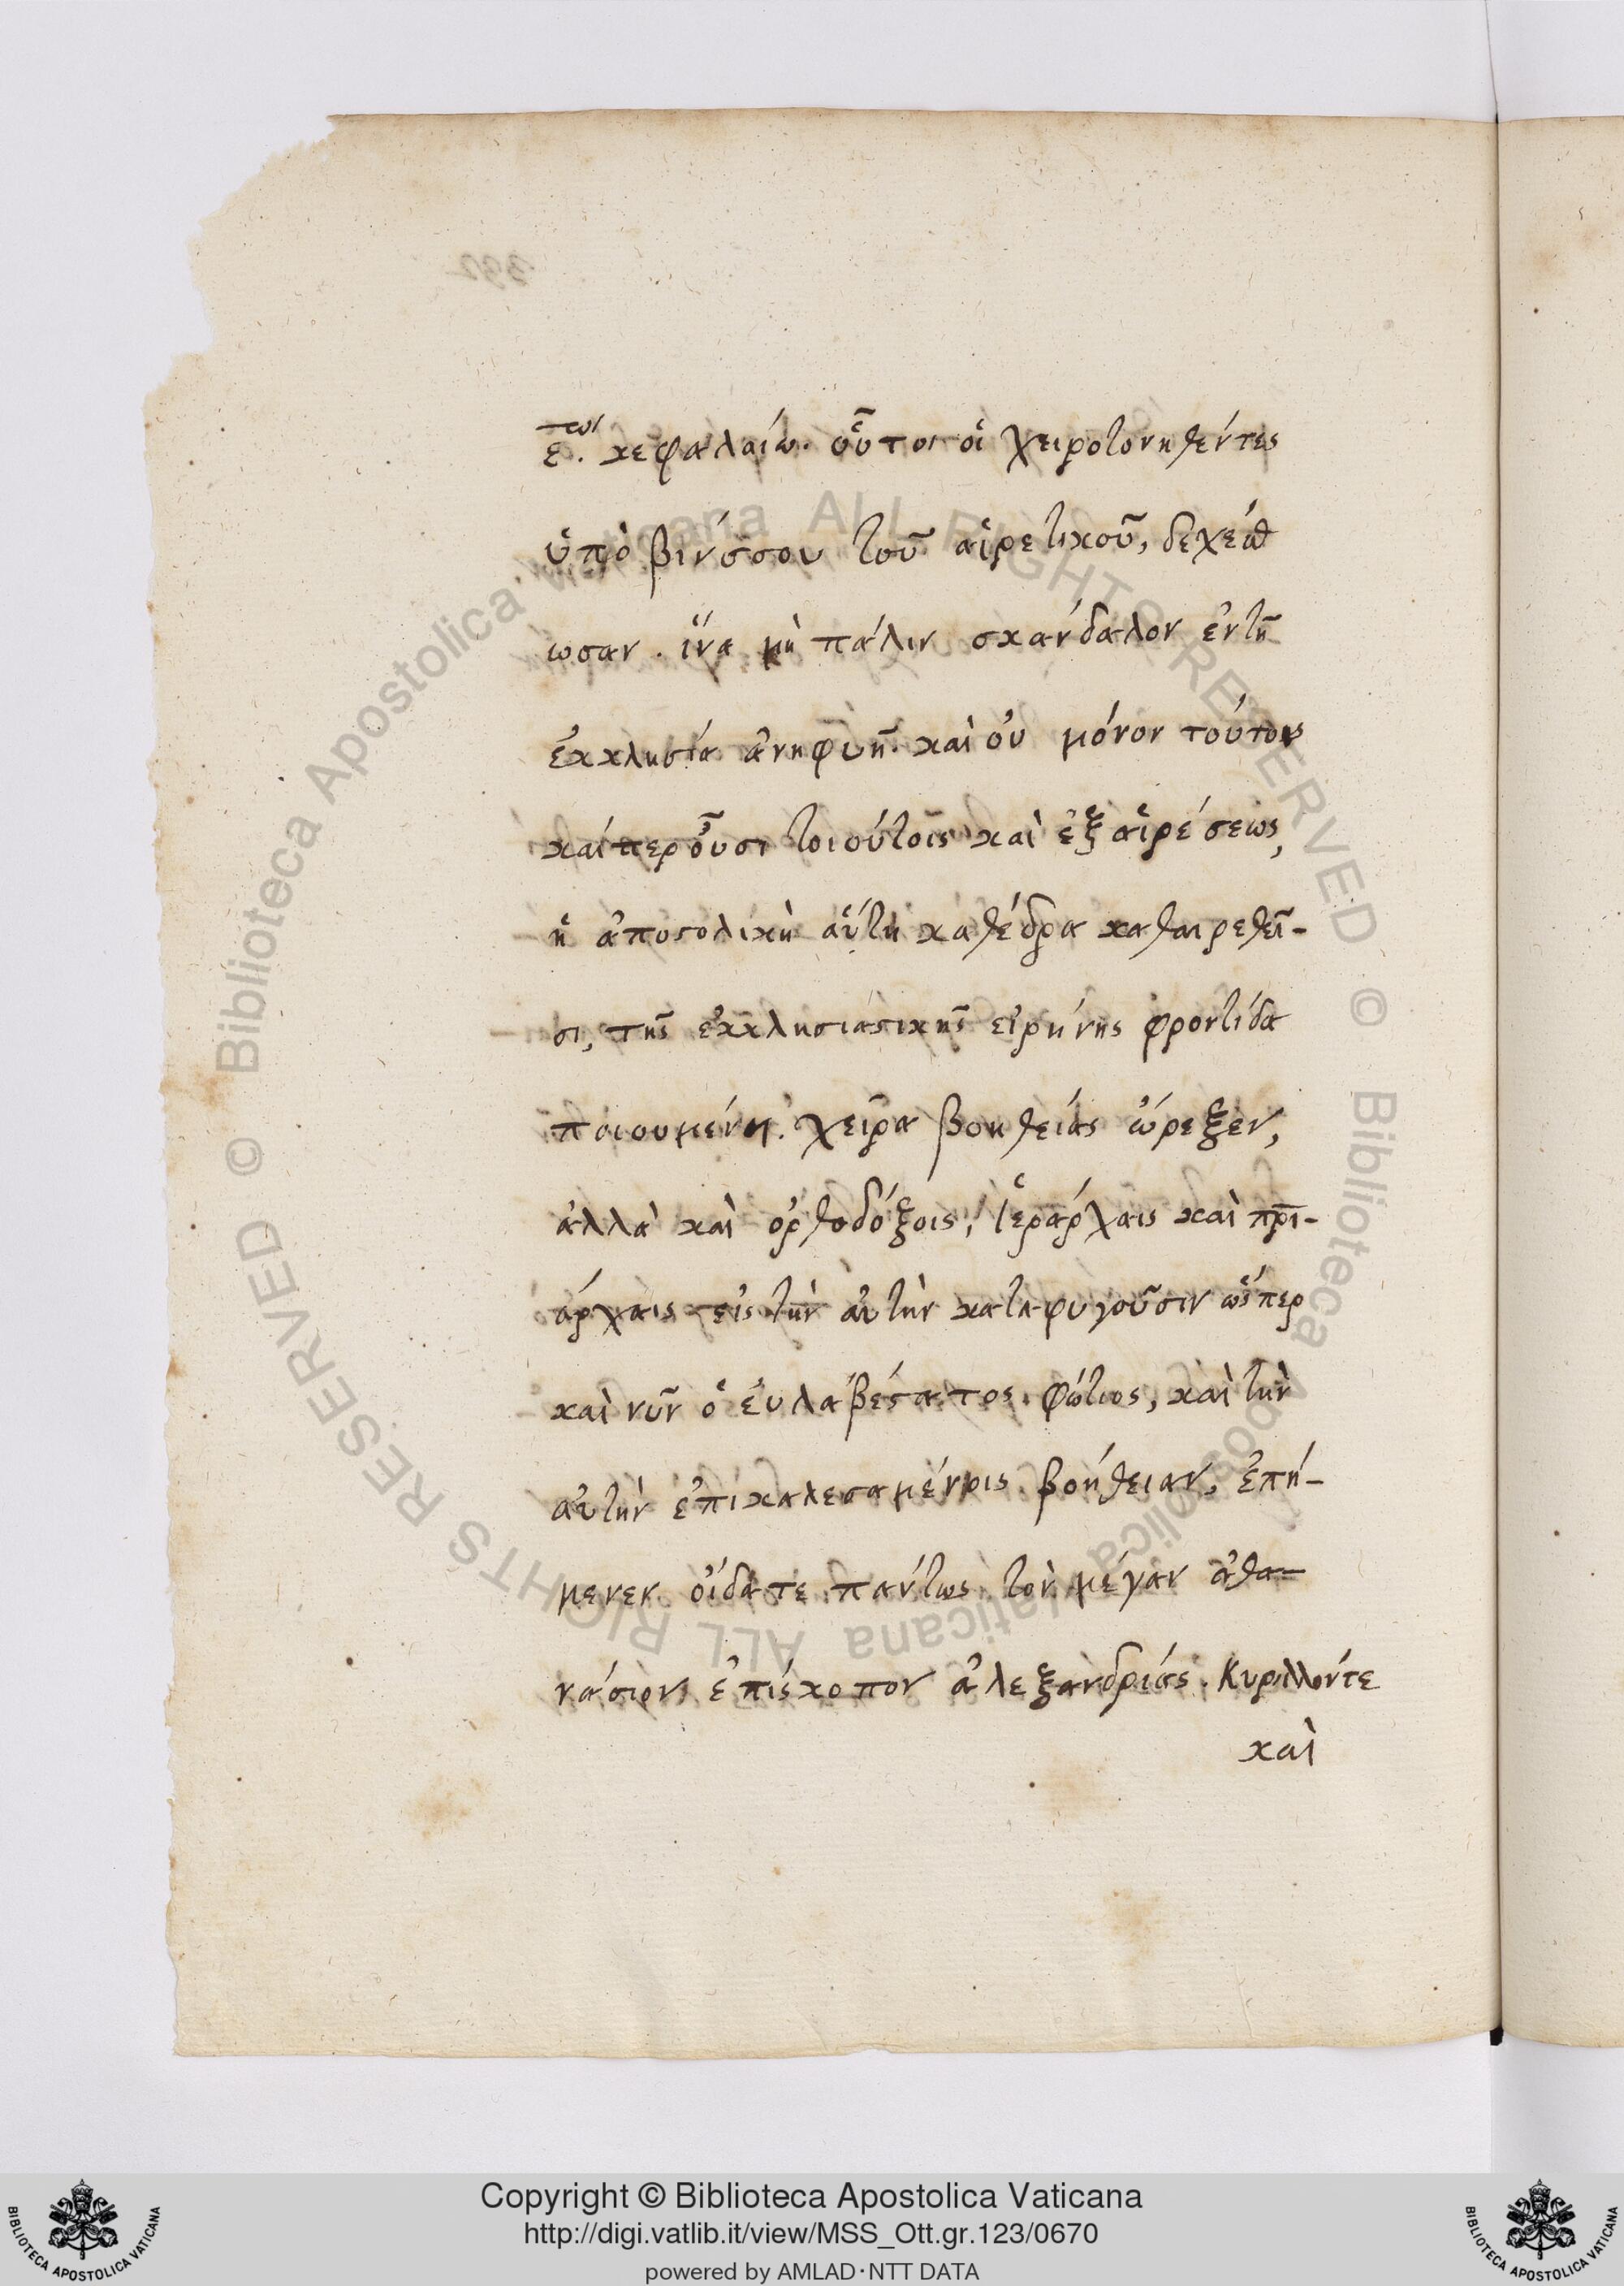 ε̅τω. κεφαλαίω. οὗτοι οἱ χειροτονηθέντες
ὑπὸ βινόσου τοῦ αἱρετικοῦ, δεχέσθ
ωσαν. ἵνα μὴ πάλιν σκάνδαλον ἐν τῆ
ἐκκλησία ἀνηφυῆ. καὶ οὐ μόνον τούτοις
καίπερ οὖσι τοιούτοις καὶ ἐξ αἱρέσεως,
ἡ ἀποστολικὴ αὕτη καθέδρα καθαιρεθεῖ-
σι, τῆς ἐκκλησιαστικῆς εἰρήνης φροντίδα
ποιουμένη. χεῖρα βοηθείας ὤρεξεν,
ἀλλὰ καὶ ὀρθοδόξοις, ἱεράρχαις καὶ πρι-
άρχαις εἰς τὴν αὐτὴν καταφυγοῦσιν ὥσπερ
καὶ νῦν ὁ ἐυλαβέστατος φώτιος, καὶ τὴν
αὐτὴν ἐπικαλεσαμένοις βοήθειαν, ἐπή-
μενεν οἴδατε πάντως τὸν μέγαν ἀθα-
νάσιον ἐπίσκοπον ἀλεξανδρίας. Κυριλλόντε
καὶ
392
Copyright © Biblioteca Apostolica Vaticana
http://digi.vatlib.it/view/MSS_Ott.gr.123/0670
powered by AMLAD·NTT DATA
BIBLIOTECA APOSTOLICA VATICANA
BIBLIOTECA APOSTOLICA VATICANA
© Biblioteca Apostolica Vaticana ALL RIGHTS RESERVED
© Biblioteca Apostolica Vaticana ALL RIGHTS RESERVED